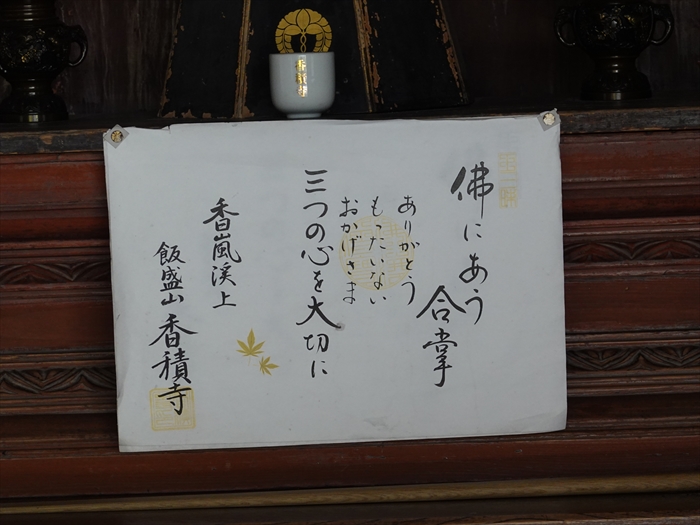 佛にあう
合掌
ありがとう
もったいない
おかげさま
三つの心を大切に
香嵐渓上
飯盛山 香積寺